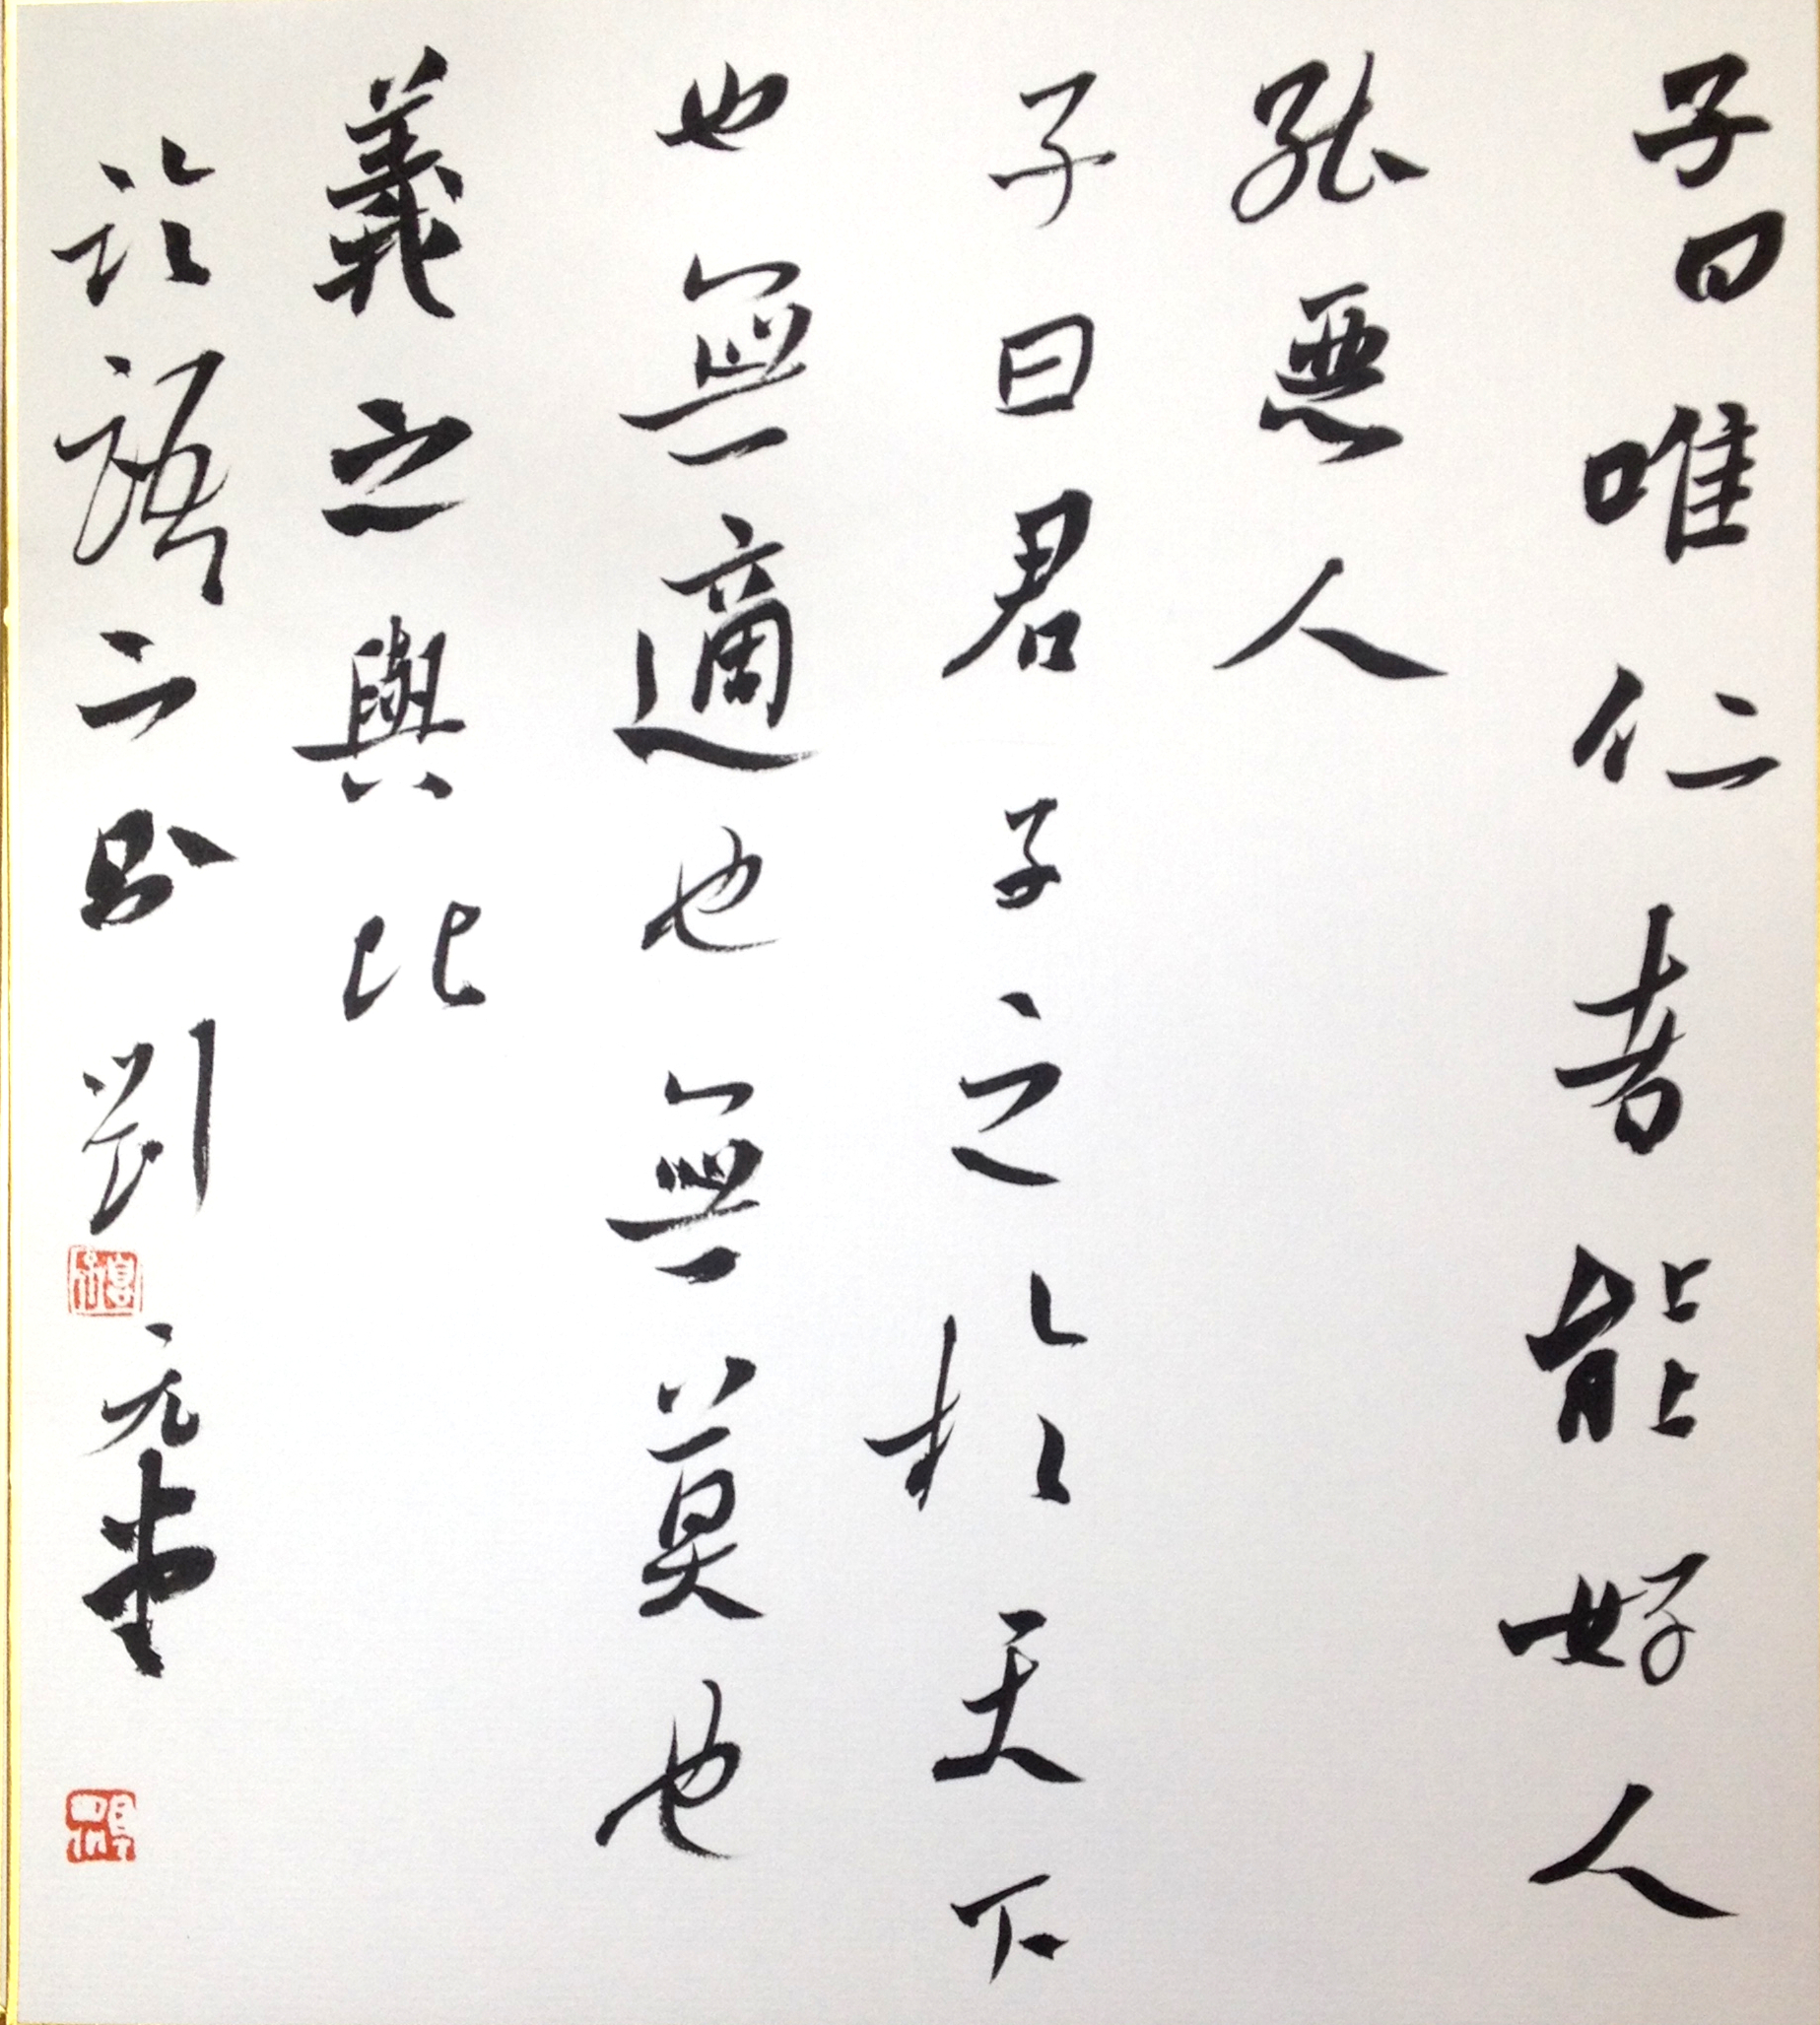 子曰唯仁者能好人
能惡人
子曰君子之於天下
也無適也無莫也
義之與比
論語二則 劉元堂